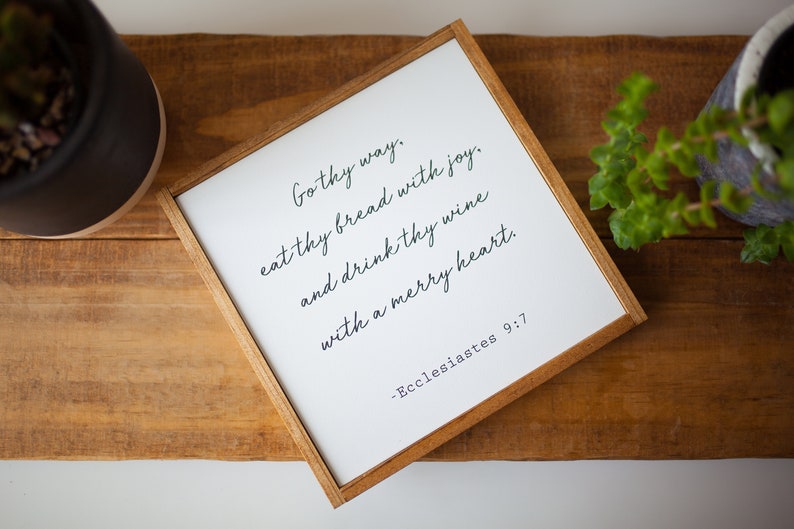 Go thy way,
eat thy bread with joy,
and drink thy wine
with a merry heart.
-Ecclesiastes 9:7